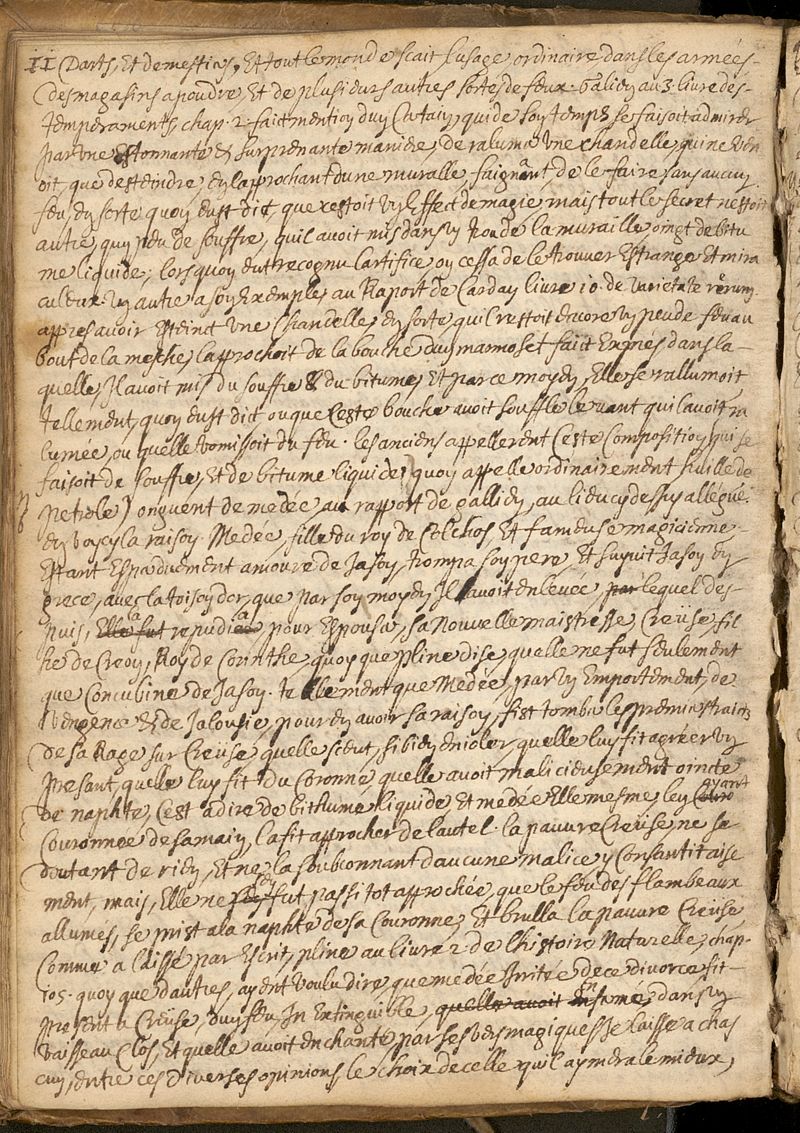 II Darts, Et de mestiers, Et tout le monde scait l'usage ordinaire dans les armées
des magasins a poudre, Et de plusieurs autres sortes de feux. Galien au 3. livre des
temperaments, chap. 2. faict mention d'un certain, qui de son temps se faisoit admirer
par une Estonnante & surprenante maniere, de ralumer une chandelle, qui ne
oit, que desteindre, En l'approchant d'une muralle, faignant de le faire sans aucun
feu, En sorte quon eust dict, que cestoit un Effect de magie, mais tout le secret nestoit
autre qun peu de souffre, quil avoit mis dans un trou de la muraille oingt de bitu
me liquide; lors quon eut recognu l'artifice, on cessa de le trouver Estrange Et mira
culeux. un autre a son Exemple, au Raport de Cardan livre 10. de varietate rerum.
appres avoir Esteinct une Chandelle, En sorte quil restoit encore un peu de feu au
bout de la mesche, l'approchoit de la bouche d'un marmoset faict Exprés dans la
quelle, Il avoit mis du souffre & du bitume, Et par ce moyen, Elle se rallumoit
tellement, quon eust dict ou que Ceste bouche avoit soufflé le vant qui l'avoit ra
lumée, ou quelle vomissoit du feu. les anciens appellerent Ceste Composition qui se
faisoit de souffre, Et de bitume liquide (quon appelle ordinairement huille de
petrole) onguent de medée, au rapport de gallien, au lieu cy dessus allegué.
En voycy la raison. Medée, fille du roy de Colchos, Et fameuse magicienne
Estant Esparduement amoure de Jason, trompa son pere, Et suyvit Jason En
grece, avec la toison dor, que par son moyen Il avoit enlevée, par lequel des
puis, Elle fut repudiée a pour Espousa, sa nouvelle maistresse Creüse, fil
lhe de Creon, Roy de Corinthe, quoy que pline dise, quelle ne fut seulement
que Concubine de Jason. tellement que Medée, par un Emportement, de
vengence & de Jalousie, pour en avoir sa raison, fist tomber les premiers traicts
de sa Rage sur Creüse, quelle sceut, si bien enioler, quelle luy fit agréer un
presant, quelle luy fit d'un Coronne quelle avoit malicieusement oincte
de naphte, Cest a dire de bithume liquide, Et medée Elle mesme, len ayant
Couronnée de sa main, la fit approcher de lautel. la pauvre Creüse, ne se
doutant de rien, Et ne la soubconnant daucune malice, y Consantit aise
ment, mais, Elle ne fut pas si tot approchée, que le feu des flambeaux
allumés, se prist a la naphte de sa Couronne, Et brulla la pauvre Creüse,
Comme a laissé par Escrit, pline au livre 2. de l'histoire Naturelle, chap.
105. quoy que d'autres, ayent voulu dire, que medée Irritée de ce divorce fit
present a Creüse, d'un feu, In Extinguible, quelle avoit Enfermé, dans un
vaisseau Clos, Et quelle avoit enchanté par ses vers magiques Je laisse a chas
cun, entre ces Diverses opinions le choix de celle quil aymera le mieux,